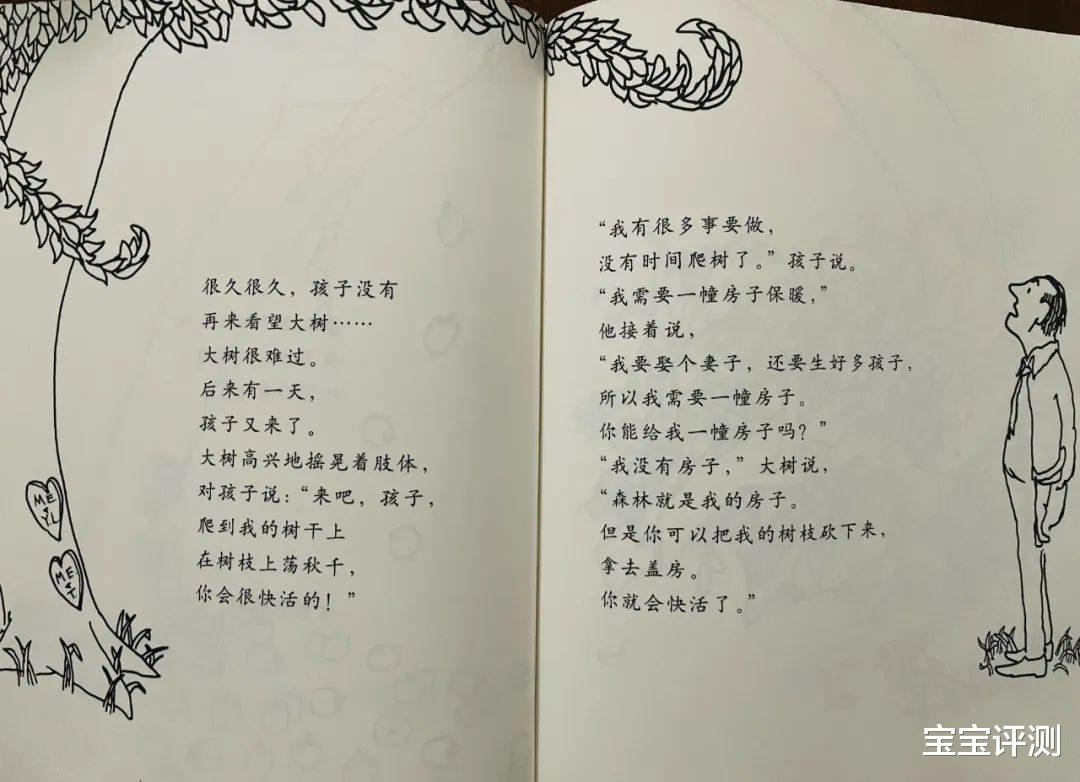 很久很久，孩子没有
再来看望大树……
大树很难过。
后来有一天，
孩子又来了。
大树高兴地摇晃着肢体，
对孩子说：“来吧，孩子，
爬到我的树干上
在树枝上荡秋千，
你会很快活的！”
ME
+
Y.L.
ME
+
T.
“我有很多事要做，
没有时间爬树了。”孩子说。
“我需要一幢房子保暖，”
他接着说，
“我要娶个妻子，还要生好多孩子，
所以我需要一幢房子。
你能给我一幢房子吗？”
“我没有房子，”大树说，
“森林就是我的房子。
但是你可以把我的树枝砍下来，
拿去盖房。
你就会快活了。”
宝宝评测